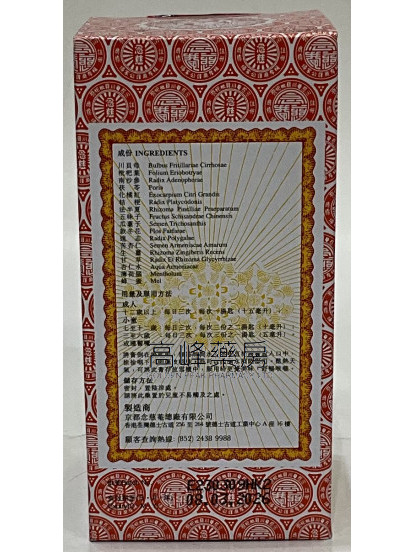 成份 INGREDIENTS
川貝母 Bulbus Fritillariae Cirrhosae
枇杷葉 Folium Eriobotryae
南沙參 Radix Adenophorae
茯苓 Poria
化橘紅 Exocarpium Citri Grandis
桔梗 Radix Platycodonis
法半夏 Rhizoma Pinelliae Praeparatum
五味子 Fructus Schisandrae Chinensis
瓜蔞子 Semen Trichosanthis
款冬花 Flos Farfarae
遠志 Radix Polygalae
苦杏仁 Semen Armeniacae Amarum
生薑 Rhizoma Zingiberis Recens
甘草 Radix Et Rhizoma Glycyrrhizae
杏仁水 Aqua Armeniacae
薄荷腦 Mentholum
蜂蜜 Mel
用量及服用方法
成人
十二歲以上:每日三次,每次一湯匙(十五毫升)
小童
七至十二歲:每日三次,每次三份之二湯匙(十毫升)
高峰藥房
儲存方法
密封,置陰涼處。
製造商
京都念慈菴總廠有限公司
香港荃灣德士古道 256 至 264 號德士古道工業中心 A 座 16 樓
顧客查詢熱線 (852) 2438 9988
E230309HK2
08.03.2026